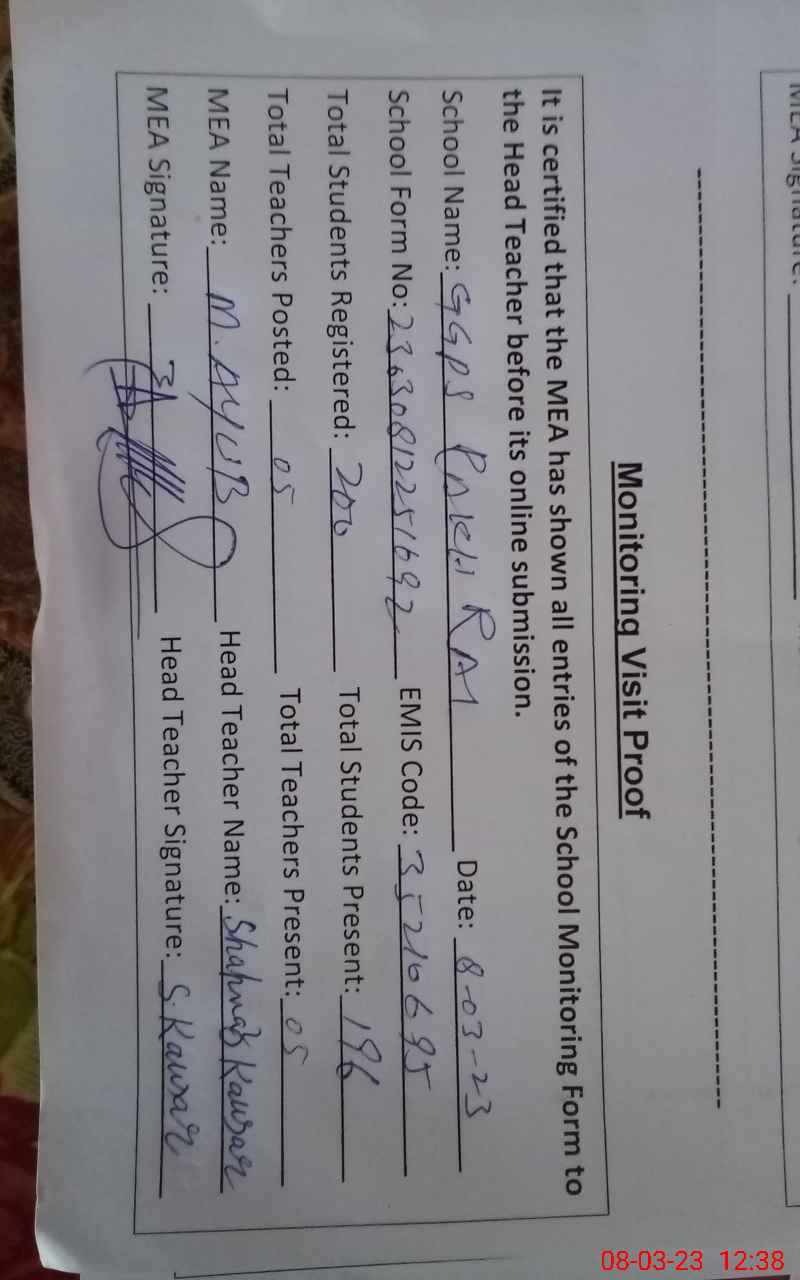 MEA Signature:
Monitoring Visit Proof
It is certified that the MEA has shown all entries of the School Monitoring Form to
the Head Teacher before its online submission.
School Name: GGPS RAKH RAI Date: 8-03-23
School Form No: EMIS Code: 35210695
Total Students Registered: 200 Total Students Present: 196
Total Teachers Posted: 05 Total Teachers Present: 05
MEA Name: M. AYUB Head Teacher Name: Shahnaz Kausar
MEA Signature: Head Teacher Signature: S. Kausar
08-03-23 12:38